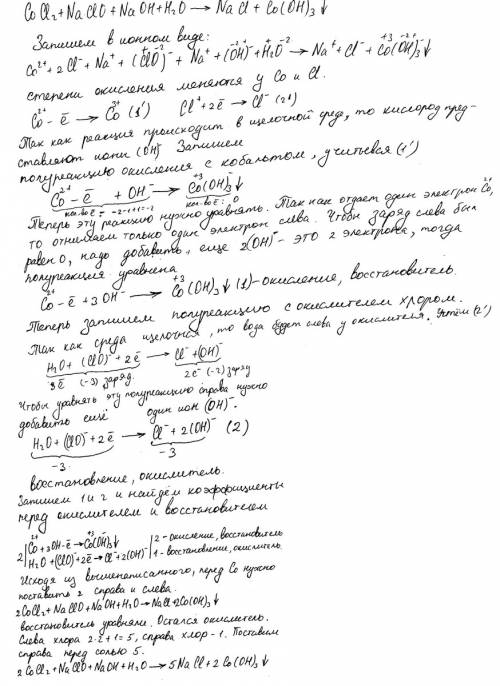 CoCl₂ + NaClO + NaOH + H₂O → NaCl + Co(OH)₃↓
Запишем в ионном виде:
Co²⁺ + 2Cl⁻ + Na⁺ + (ClO)⁻ + Na⁺ + (OH)⁻ + H₂O → Na⁺ + Cl⁻ + Co(OH)₃↓
степени окисления меняются у Co и Cl.
Co²⁺ - ē → Co³⁺ (1') Cl⁺ + 2ē → Cl⁻ (2')
Так как реакция происходит в щелочной сред, то кислород пред-
ставляют ионы (OH)⁻. Запишем
полуреакцию окисления с кобальтом, учитывая (1')
Co²⁺ - ē + OH⁻ → Co⁺³(OH)₃↓
кол-во ē = -2-1+1=-2 кол-во ē: 0
Теперь эту реакцию нужно уравнять. Так как отдает один электрон Co²⁺,
то отнимаем только один электрон слева. Чтобы заряд слева был
равен 0, надо добавить еще 2(OH)⁻ - это 2 электрона, тогда
полуреакция уравнена
Co²⁺ - ē + 3OH⁻ → Co⁺³(OH)₃↓ (1) - окисление, восстановитель.
Теперь запишем полуреакцию с окислителем хлором.
Так как среда щелочная, то вода будет слева у окислителя. Учтём (2')
H₂O + (ClO)⁻ + 2ē → Cl⁻ + (OH)⁻
3ē (-3) заряд. 2ē (-2) заряд
Чтобы уравнять эту полуреакцию справа нужно
добавить ещё один ион (OH)⁻.
H₂O + (ClO)⁻ + 2ē → Cl⁻ + 2(OH)⁻ (2)
-3 -3
восстановление, окислитель.
Запишем 1 и 2 и найдём коэффициенты
перед окислителем и восстановителем
2| Co²⁺ + 3OH - ē → Co⁺³(OH)₃↓ | 2 - окисление, восстановитель
H₂O + (ClO)⁻ + 2ē → Cl⁻ + 2(OH)⁻ | 1 - восстановление, окислитель.
Исходя из вышенаписанного, перед Co нужно
поставить 2 справа и слева.
2CoCl₂ + NaClO + NaOH + H₂O → NaCl + 2Co(OH)₃↓
восстановитель уравняли. Остался окислитель.
Слева хлора 2·2+1=5, справа хлор - 1. Поставим
справа перед солью 5.
2CoCl₂ + NaClO + NaOH + H₂O → 5NaCl + 2Co(OH)₃↓